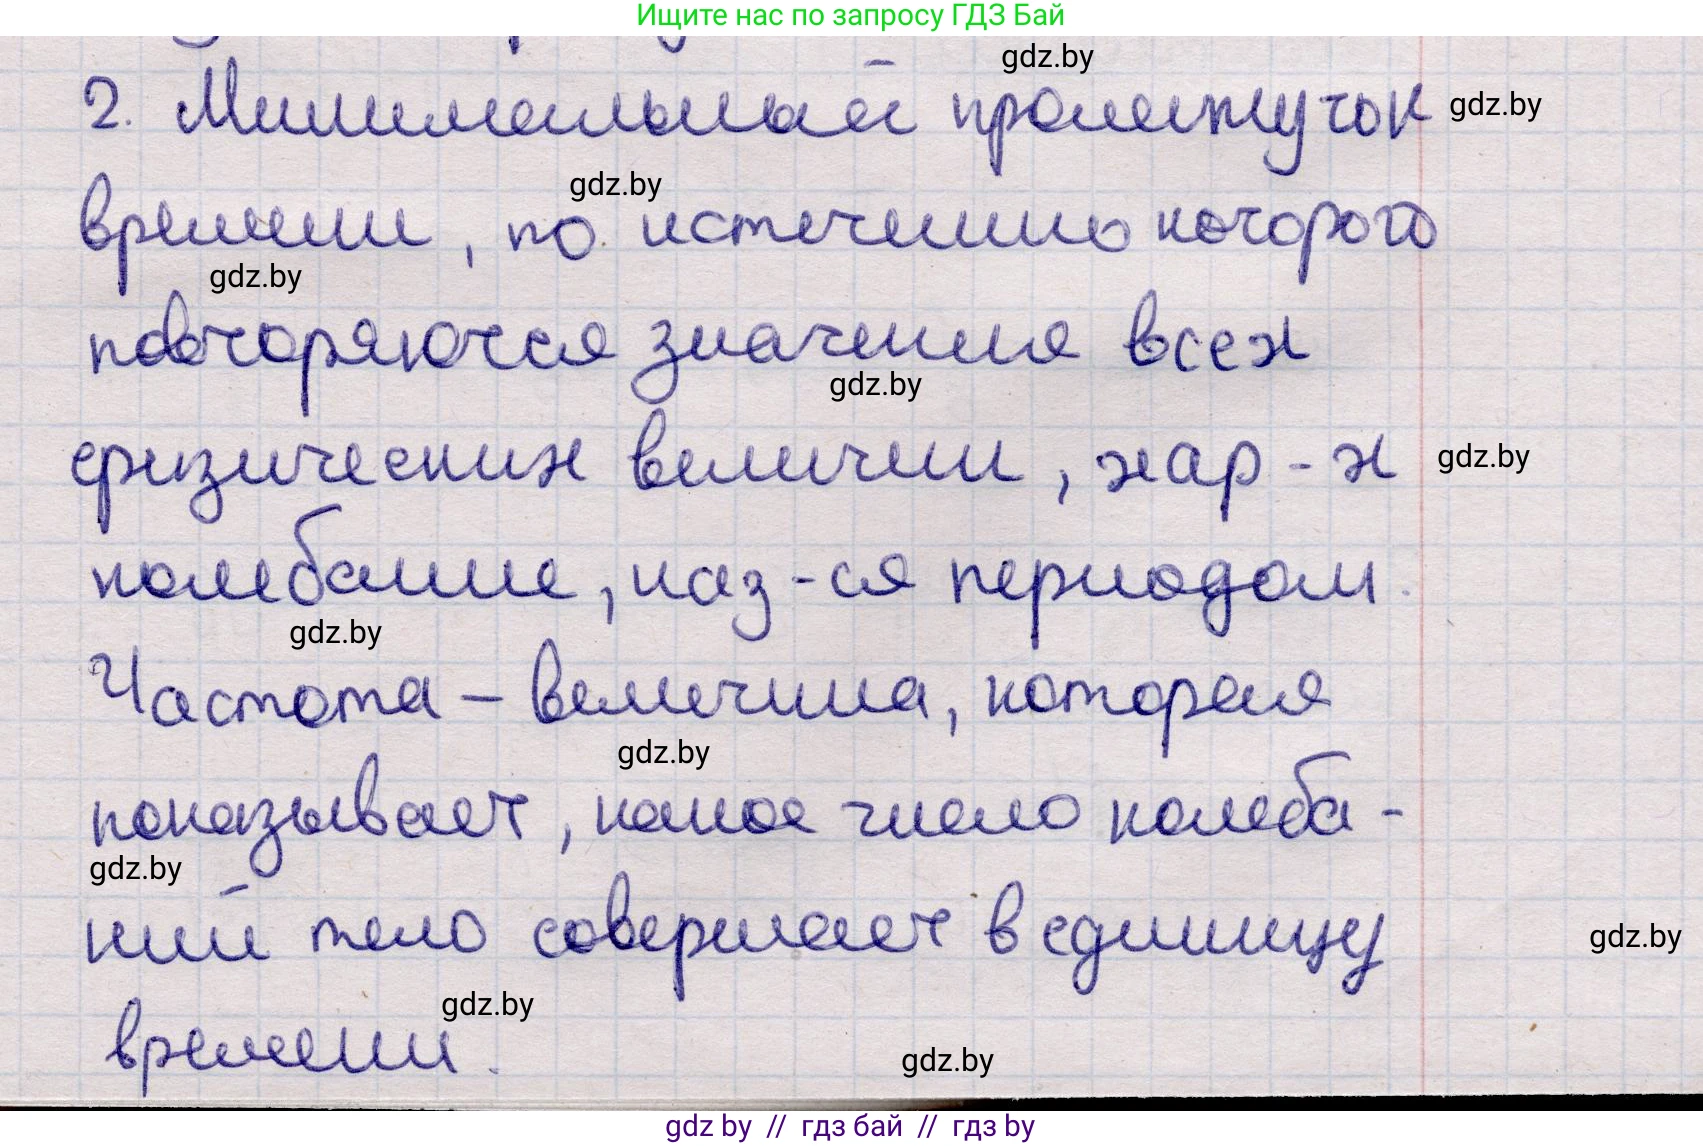 Ищите нас по запросу ГДЗ Бай
gdz.by
2. Минимальный промежуток gdz.by
gdz.by
времени, по истечению которого
gdz.by
повторяются значения всех
gdz.by
физических величин, хар-х gdz.by
колебание, наз-ся периодом.
gdz.by
Частота – величина, которая
gdz.by
показывает, какое число колеба-
gdz.by
ний тело совершает в единицу gdz.by
gdz.by
времени.
gdz.by
gdz by // гдз бай // гдз by